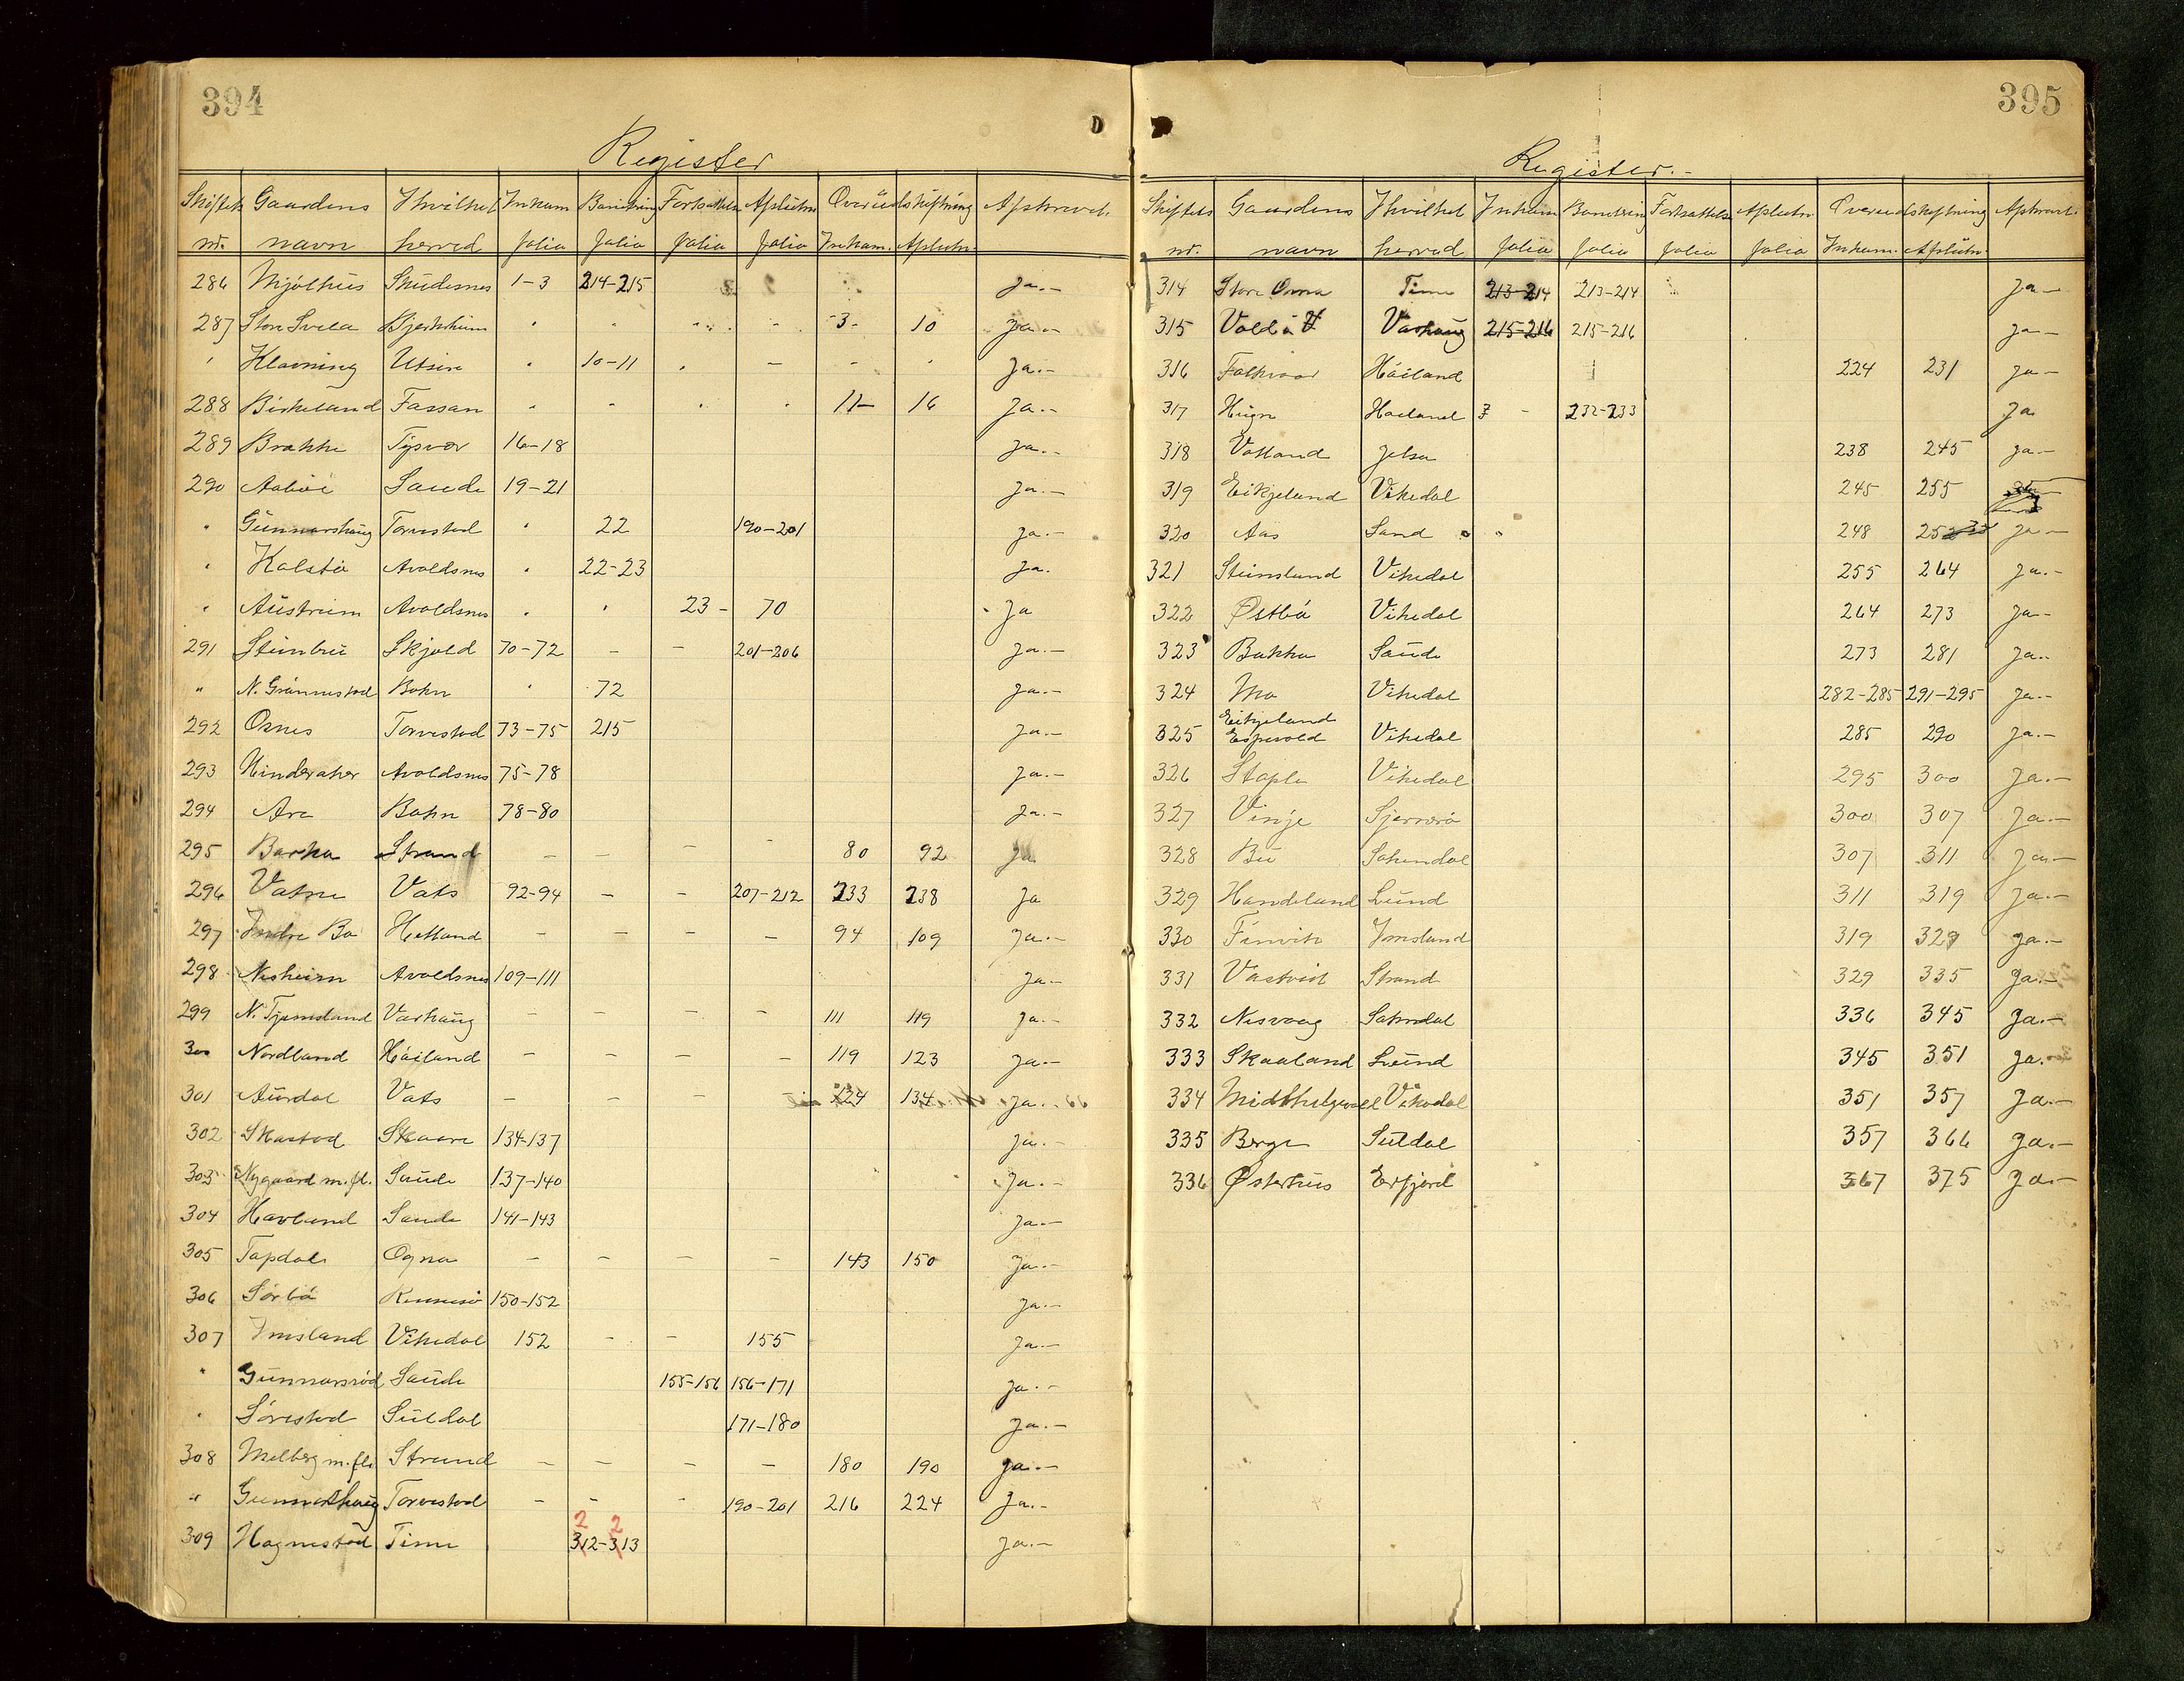 394
Register
Skiftets Gaardens I hvilket Inkam Barikring Fortsættels Afslutn Overudskiftning Afskrevet.
nr. navn herred folio folio folio folio Inkam. Afslutn
286 Mjølhus Skudesnes 1-3 214-215 ja.-
287 Store Svela Bjerkreim " " " " 3- 10 ja.-
" Klovning Utsira " 10-11 " - - " ja.-
288 Birkeland Fossan " " " " 11- 16 ja.-
289 Brakke Tysvær 16-18 ja.-
290 Aabøe Saude 19-21 ja.-
" Gunnarshaug Torvestad " 22 190-201 ja.-
" Kalstø Avaldsnes " 22-23 ja.
" Austrum Avaldsnes " " 23- 70 ja
291 Steinbru Skjold 70-72 - - 201-206 ja.-
" N. Grønnestad Bokn " 72 ja.-
292 Osnes Torvestad 73-75 215 ja.-
293 Hinderaker Avaldsnes 75-78 ja.-
294 Are Bokn 78-80 ja.-
295 Barka Strand - - - - 80 92 ja
296 Vatne Vats 92-94 - - 207-212 233 238 ja
297 Indre Bø Hetland - - - - 94 109 ja.-
298 Nesheim Avaldsnes 109-111 ja.-
299 N. Tjemsland Varhaug - - - - 111 119 ja.-
300 Nordland Håiland - - - - 119 123 ja.-
301 Aurdal Vats - - - - 124 134 ja.-
302 Skastad Skaare 134-137 ja.-
303 Nygaard m.fl. Saude 137-140 ja.-
304 Havland Sande 141-143 ja.-
305 Tapdal Ogna - - - - 143 150 ja.-
306 Sørbø Rennesø 150-152 ja.-
307 Imsland Vikedal 152 - - 155 ja.-
" Gunnarsrød Saude 155-156 156-171 ja.-
" Sørestad Suldal 171-180 ja.-
308 Melberg m.fl. Strand - - - - 180 190 ja.-
" Gunnarshaug Torvestad - - - 190-201 216 224 ja.-
2 2
309 Hognestad Time 312-313 ja.-
395
Register.-
Skiftets Gaardens I hvilket Inkam Bonitering Fortsættelse Afslutn Overudskiftning Afskrevet.
nr. navn herred folio folio folio folio Inkam. Afslutn.
314 Store Oma Time 213-214 213-214 ja-
315 Vold Varhaug 215-216 215-216 ja-
316 Håiland 224 231 ja-
317 Haaland 3 - 232-233 ja
318 Vatland Jelsa 238 245 ja-
319 Eikjeland Vikedal 245 255
320 Aas Sand " 248 252 ja-
321 Steinsland Vikedal 255 264 ja.-
322 Østbø Vikedal 264 273 ja-
323 Bakka Saude 273 281 ja..
324 Mo Vikedal 282-285 291-295 ja.-
Eikjeland
325 Espevold Vikedal 285 290 ja.-
326 Stople Vikedal 295 300 ja.-
327 Vinje Sjernerø 300 307 ja.-
328 Bu Sokendal 307 311 ja.-
329 Handeland Lund 311 319 ja.-
330 Finvik Imsland 319 329 ja.-
331 Vastveit Strand 329 335 ja.-
332 Nesvaag Sokndal 336 345 ja.-
333 Skaaland Lund 345 351 ja.-
334 Midthelgevold Vikedal 351 357 ja.-
335 Berge Suldal 357 366 ja.-
336 Østerhus Erfjord 367 375 ja.-